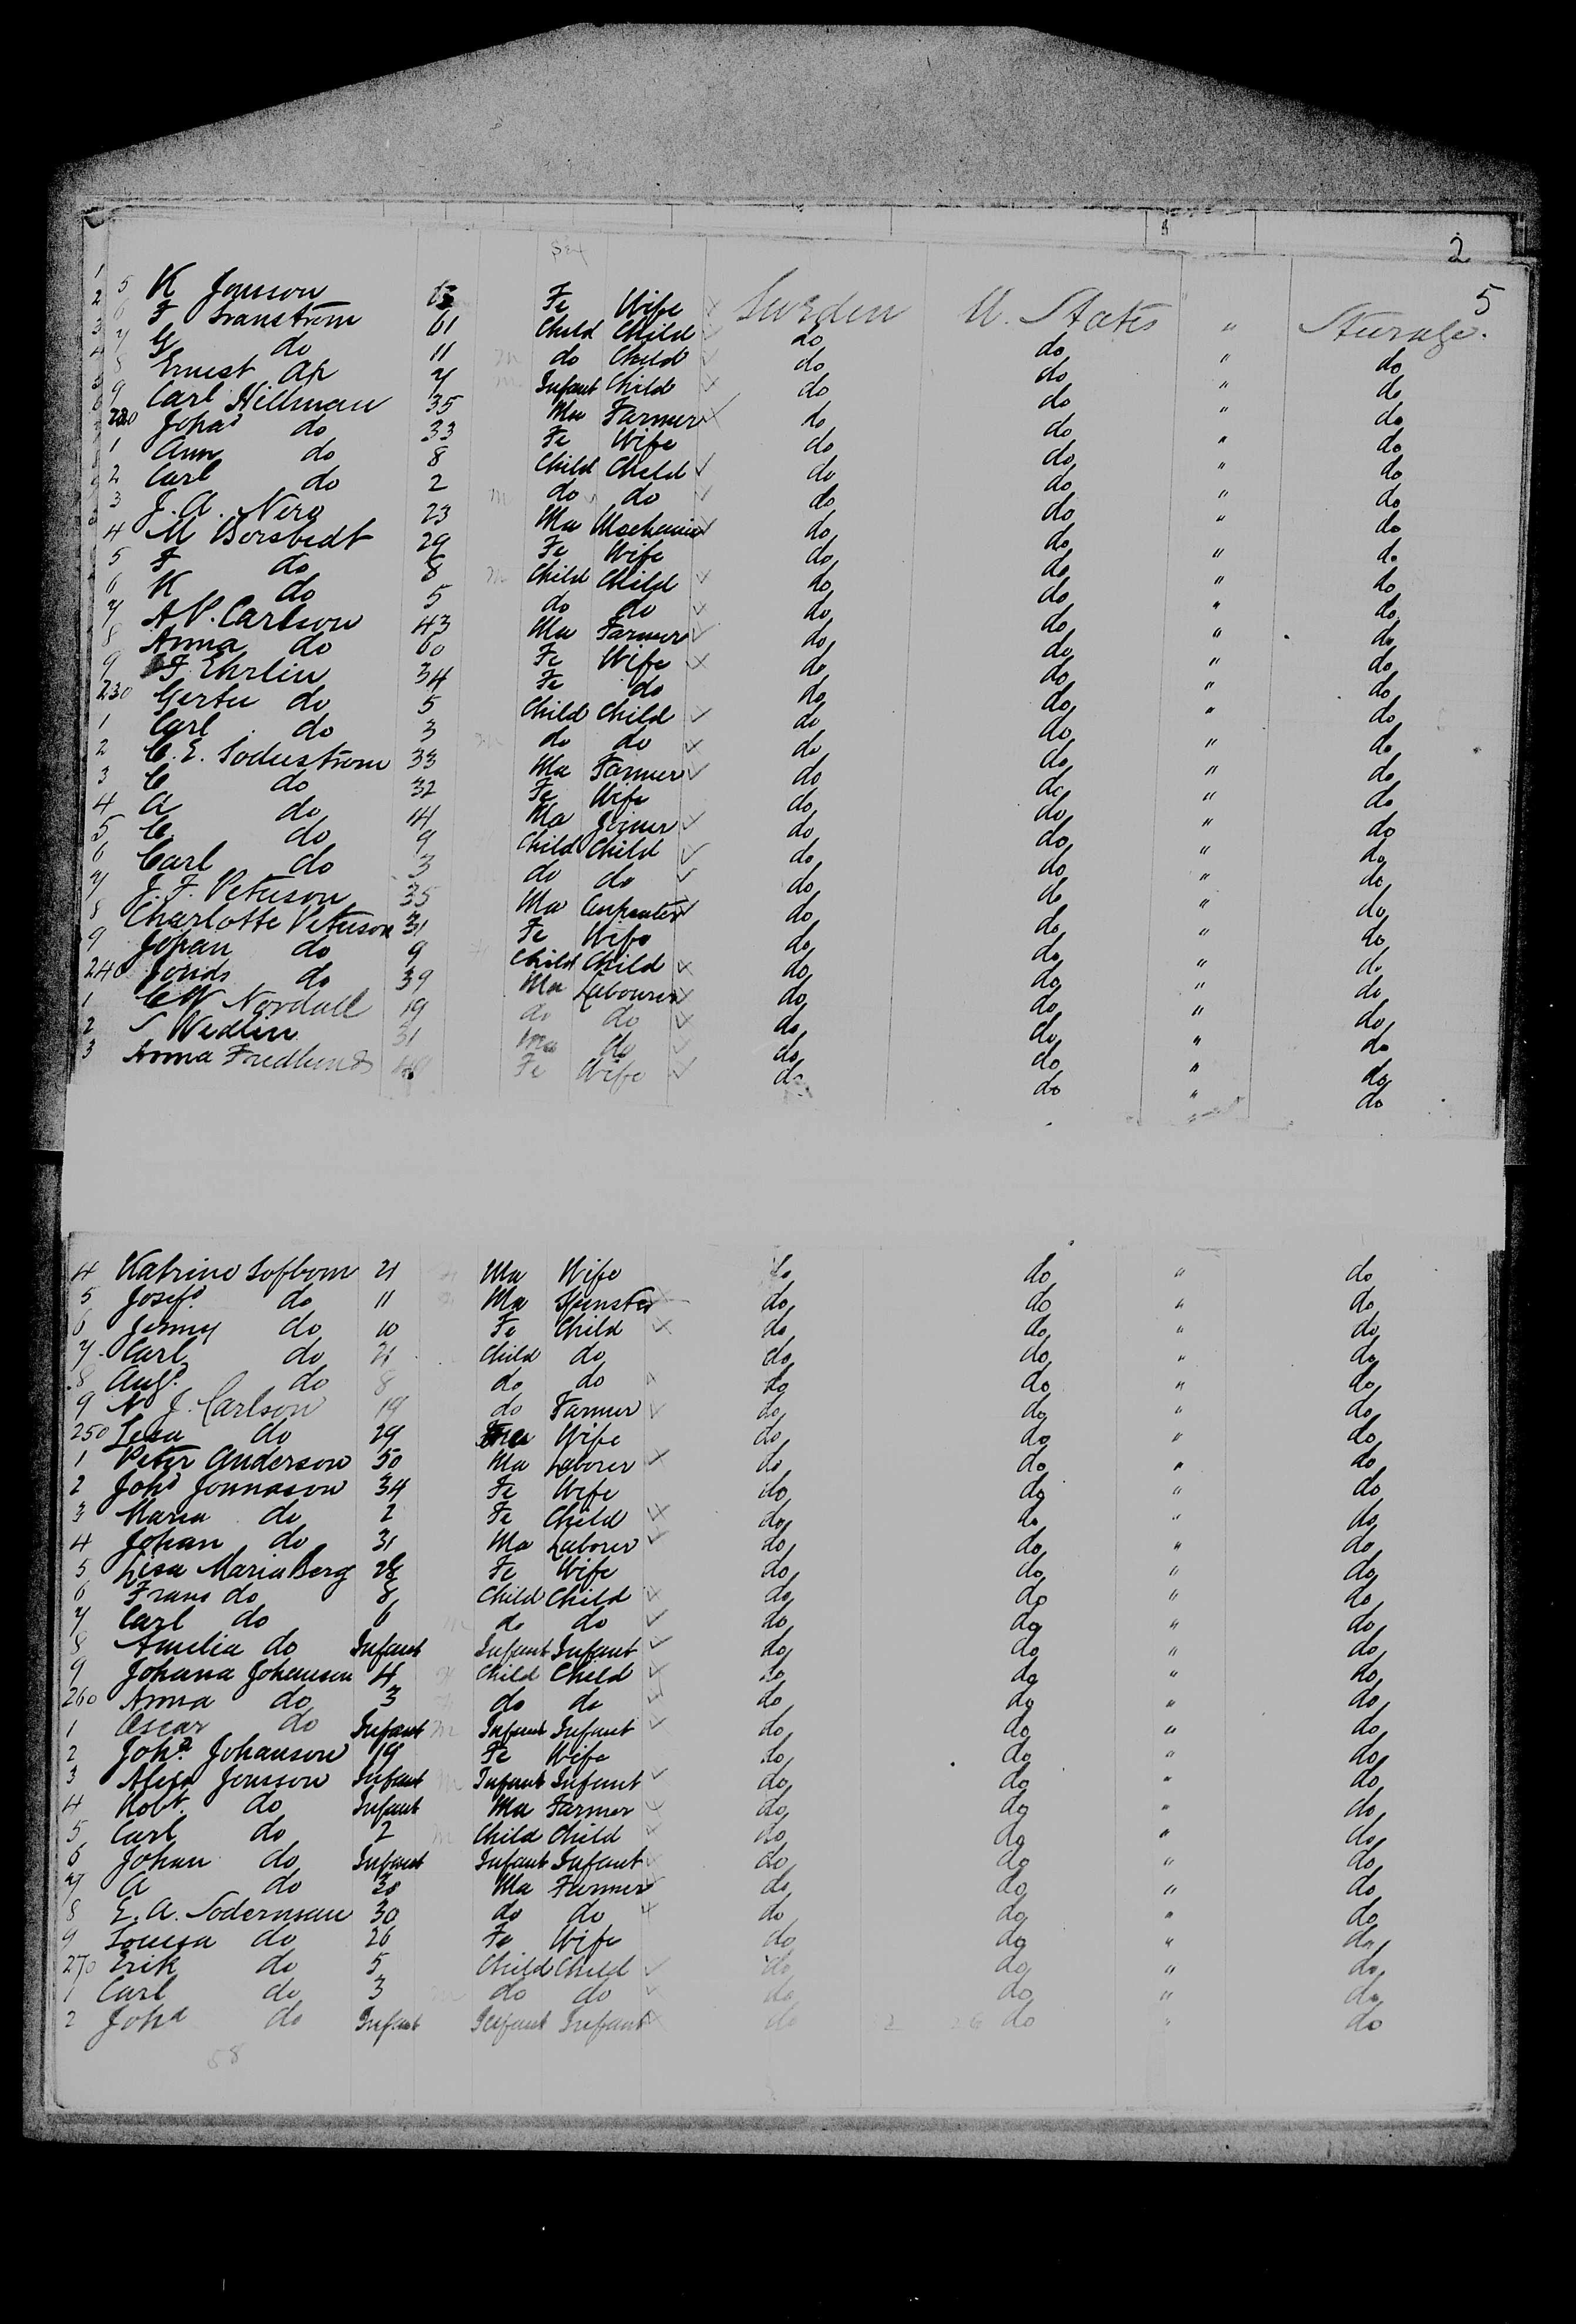 2
5
Sex
1 5 K Jonsson Fe Wife Sweden U. States " Steerage.
2 6 F Transtrom 61 Child Child do do " do
3 7 G do 11 do Child do do " do
4 8 Ernest do 7 Infant Child do do " do
9 Carl Hillman 35 Ma Farmer do do " do
220 Johas do 33 Fe Wife do do " do
1 Ann do 8 Child Child do do " do
2 Carl do 2 m do do do do " do
3 J. A. Nero 23 Ma Mechanic do do " do
4 M Borsbedt 29 Fe Wife do do " do
5 F do 8 m Child Child do do " do
6 K do 5 do do do do " do
7 A P. Carlson 43 Ma Farmer do do " do
8 Anna do 60 Fe Wife do do " do
9 F. Ehrlin 34 Fe do do do " do
230 Gertu do 5 Child Child do do " do
1 Carl do 3 m do do do do " do
2 C. E. Soderstrom 33 Ma Farmer do do " do
3 C do 32 Fe Wife do do " do
4 A do 14 Ma Joiner do do " do
5 C do 9 Child Child do do " do
6 Carl do 3 do do do do " do
7 J. F. Peterson 35 Ma Carpenter do do " do
8 Charlotte Peterson 31 Fe Wife do do " do
9 Johan do 9 Child Child do do " do
240 Jonds do 39 Ma Labourer do do " do
1 C W Nordall 19 do do do do " do
2 S Wedlin 31 Ma do do do " do
3 Anna Fredlund Fe Wife do do " do
4 Katrine Lofbom 21 Ma Wife do do " do
5 Josefs do 11 Ma Spinster do do " do
6 Jenny do 10 Fe Child do do " do
7 Carl do 21 Child do do do " do
8 Augs. do 8 do do do do " do
9 N J. Carlson 19 do Farmer do do " do
250 Lesa do 29 Wife do do " do
1 Peter Anderson 50 Ma Laborer do do " do
2 Johs Jonnason 34 Fe Wife do do " do
3 Maria do 2 Fe Child do do " do
4 Johan do 31 Ma Laborer do do " do
5 Lisa Maria Berg 28 Fe Wife do do " do
6 Frans do 8 Child Child do do " do
7 Carl do 6 m do do do do " do
8 Amelia do Infant Infant Infant do do " do
9 Johana Johanson 4 Child Child do do " do
260 Anna do 3 do do do do " do
1 Oscar do Infant m Infant Infant do do " do
2 Joha. Johanson 19 Fe Wife do do " do
3 Alexr Jonsson Infant m Infant Infant do do " do
4 Robt. do Infant Ma Farmer do do " do
5 Carl do 2 m Child Child do do " do
6 Johan do Infant Infant Infant do do " do
7 A do 28 Ma Farmer do do " do
8 E. A. Soderman 30 do do do do " do
9 Louisa do 26 Fe Wife do do " do
270 Erik do 5 Child Child do do " do
1 Carl do 3 m do do do do " do
2 Joha do Infant Infant Infant do do " do
58